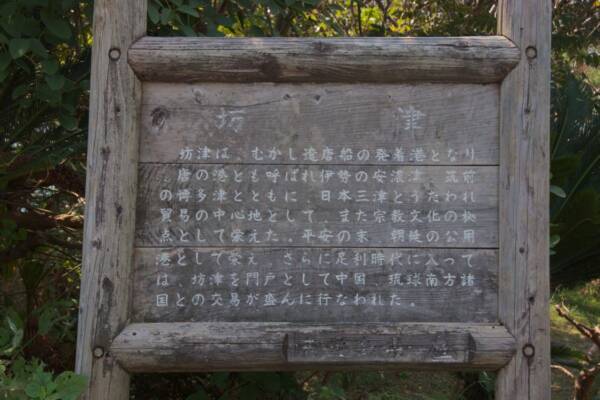 坊津
坊津は、むかし遣唐船の発着港となり
、唐の港とも呼ばれ伊勢の安濃津、筑前
の博多津とともに、日本三津とうたわれ
貿易の中心地として、また宗教文化の拠
点として栄えた。平安の末、の公用
港として栄え、さらに足利時代に入って
は、坊津を門戸として中国、琉球南方諸
国との交易が盛んに行なわれた。